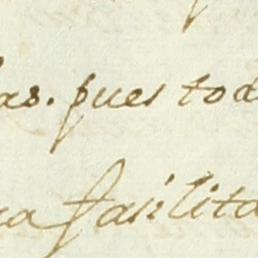 as. pues tod
a facilita